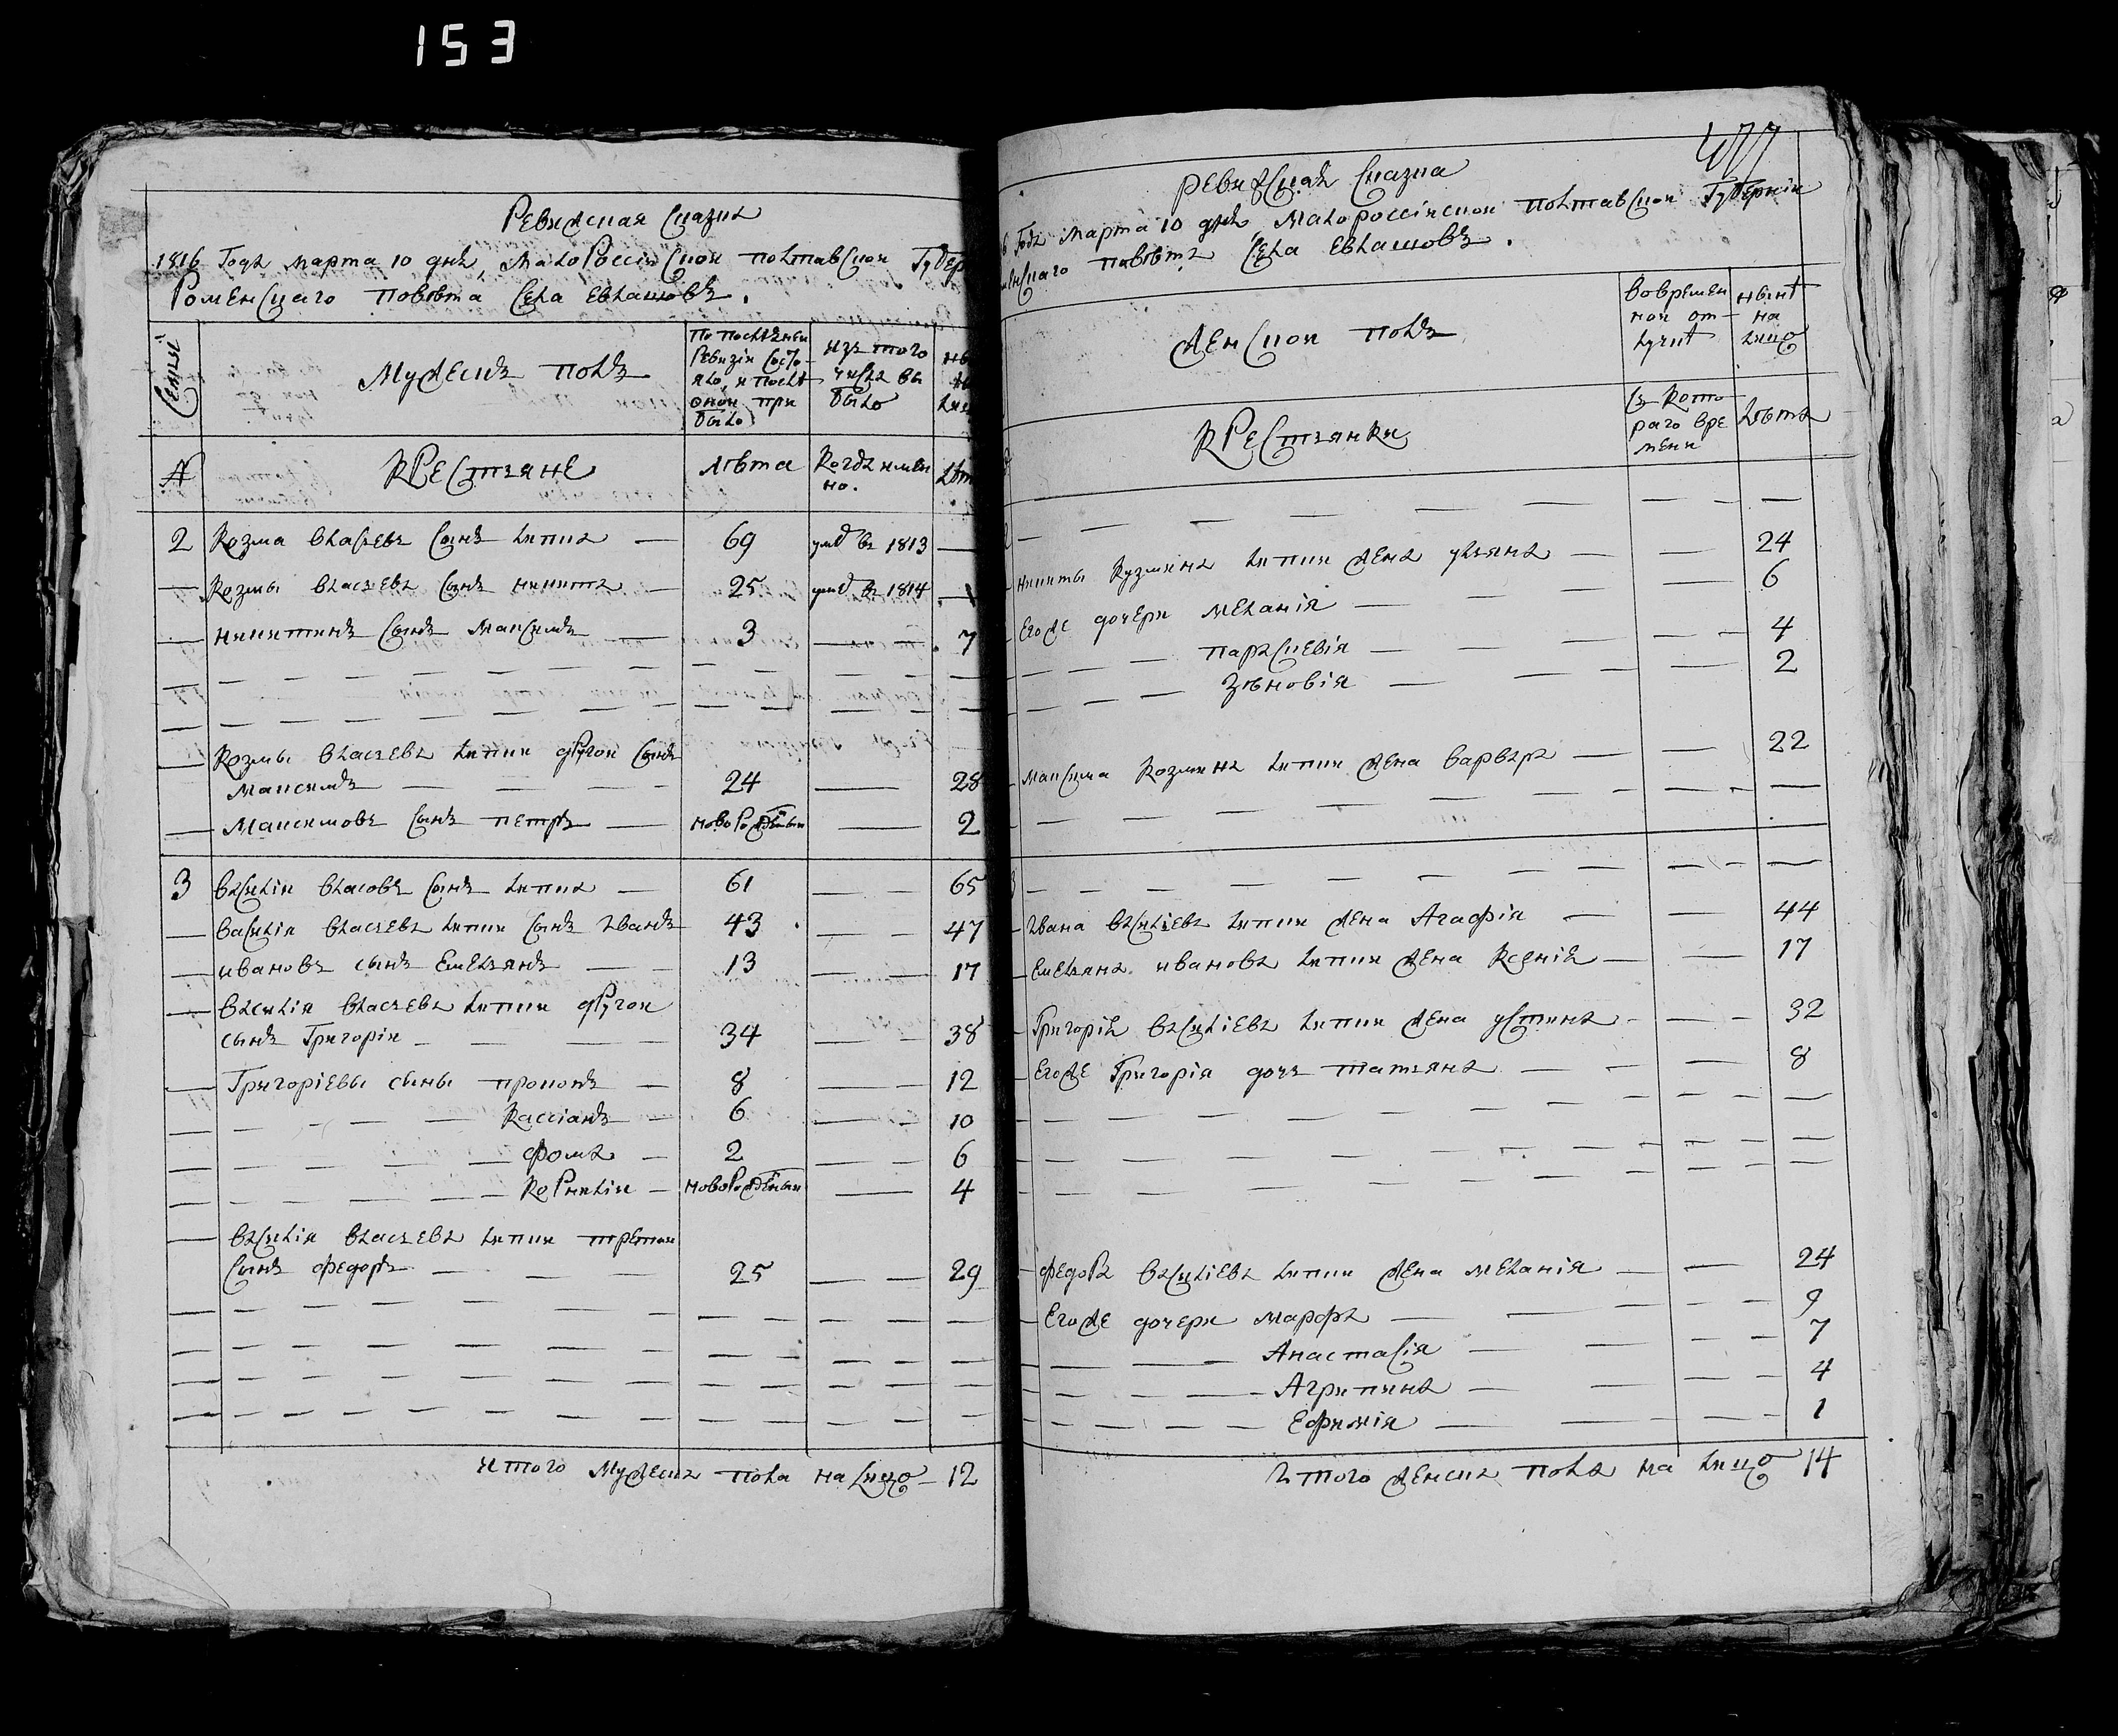 153
Ревижская сказка
1816 Года марта 10 дня, Малороссiйской полтавской Губер
Роменского повѣта села Евлашовъ.
Семьи
Мужескъ полъ
По послѣдней
Ревизiи состо
яло, и послѣ
оной при
было
изъ того
числа вы
было
№
Крестьяне
лѣта
Когда имен
но.
лѣт
2 Козма власьевъ сынъ липка — 69 умѣ въ 1813 —
— Козмы власьевa сынъ никита — 25 умѣ въ 1814 —
— никитинъ сынъ Максимъ — 3 — 7
— Козмы власьева липки другой сынъ
Максимъ — 24 — 28
— Максимовъ сынъ петръ — новорожденный — 2
3 василiй власовъ сынъ липка — 61 — 65
— василiя власьева липки сынъ иванъ 43 — 47
— ивановъ сынъ Емельянъ — 13 — 17
— василiя власьева липки другой
сынъ Григорiй — 34 — 38
— Григорiевы сыны прокопъ — 8 — 12
Кассiанъ — 6 — 10
фома — 2 — 6
Корнилiй — новорожденный — 4
— василiя власьева липки третiй
сынъ федоръ — 25 — 29
итого мужеска пола на лицо — 12
477
ревижская сказка
6 Года марта 10 дня, Малороссiйской полтавской Губернiи
менского повѣта села Евлашовъ.
женской полъ
во времен
ной от
лучкѣ
нынѣ
на
лицо
Крестьянки
съ кото
раго вре
мени
лѣта
никиты Кузмина липки жена ульяна — 24
Егоже дочери меланiя — 6
параскевiя — 4
зѣновiя — 2
максима Козмина липки жена варвара — 22
ивана василiева липки жена Агафiя — 44
Емельяна иванова липки жена Ксенiя — 17
Григорiя василiева липки жена устина — 32
Егоже Григорiя дочь татьяна — 8
федора василiева липки жена меланiя — 24
Егоже дочери марфа — 9
Анастасiя — 7
Агрипина — 4
Ефимiя — 1
итого женска пола на лицо 14